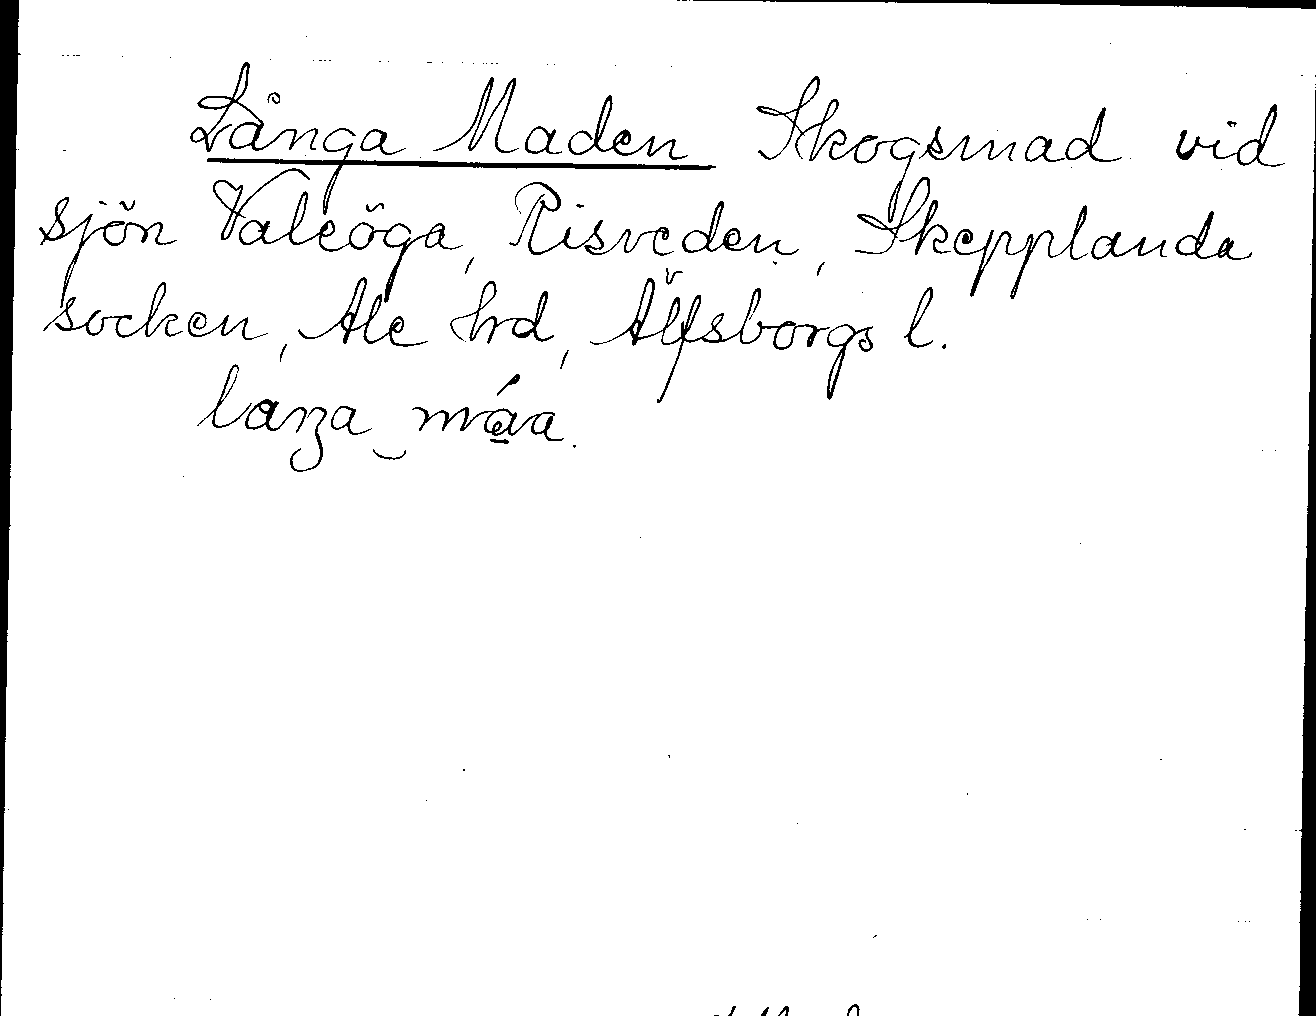 Långa Maden Skogsmad vid
sjön Valeöga, Risveden, Skepplanda
socken, Ale hrd, Älfsborgs l.
laŋa máa.